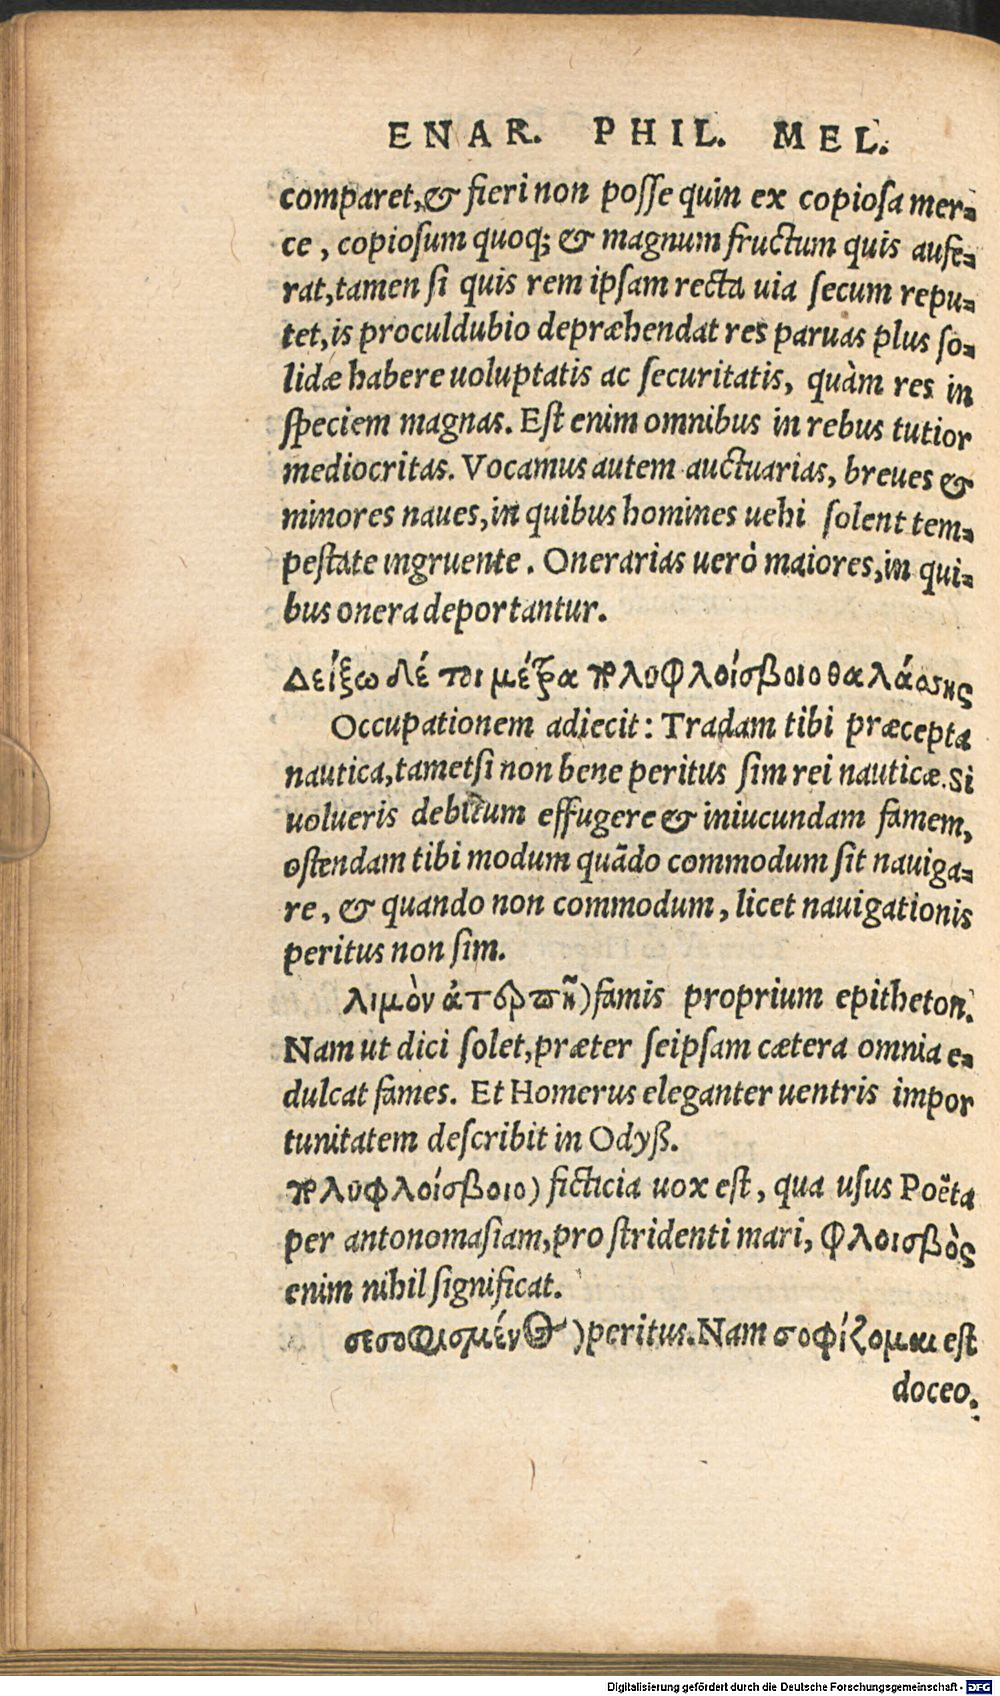 ENAR. PHIL. MEL.
comparet, & fieri non posse quin ex copiosa mer=
ce, copiosum quoq; & magnum fructum quis aufe=
rat, tamen si quis rem ipsam recta uia secum repu=
tet, is proculdubio depræhendat res paruas plus so=
lidæ habere uoluptatis ac securitatis, quàm res in
speciem magnas. Est enim omnibus in rebus tutior
mediocritas. Vocamus autem auctuarias, breues &
minores naues, in quibus homines uehi solent tem=
pestate ingruente. Onerarias uerò maiores, in qui=
bus onera deportantur.
Δείξω δέ τοι μέτρα πολυφλοίσβοιο θαλάσσης
Occupationem adiecit: Tradam tibi præcepta
nautica, tametsi non bene peritus sim rei nauticæ. Si
uolueris debitum effugere & iniucundam famem,
ostendam tibi modum quādo commodum sit nauiga=
re, & quando non commodum, licet nauigationis
peritus non sim.
λιμὸν ἀτερπῆ) famis proprium epitheton.
Nam ut dici solet, præter seipsam cætera omnia e=
dulcat fames. Et Homerus eleganter uentris impor
tunitatem describit in Odyß.
πολυφλοίσβοιο) ficticia uox est, qua usus Poëta
per antonomasiam, pro stridenti mari, φλοισβὸς
enim nihil significat.
σεσοφισμένος) peritus. Nam σοφίζομαι est
doceo.
Digitalisierung gefördert durch die Deutsche Forschungsgemeinschaft - DFG